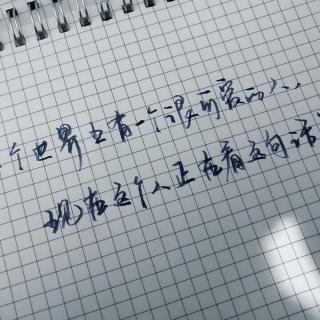 个世界上有一个很可爱的人,
现在这个人正在看这句话